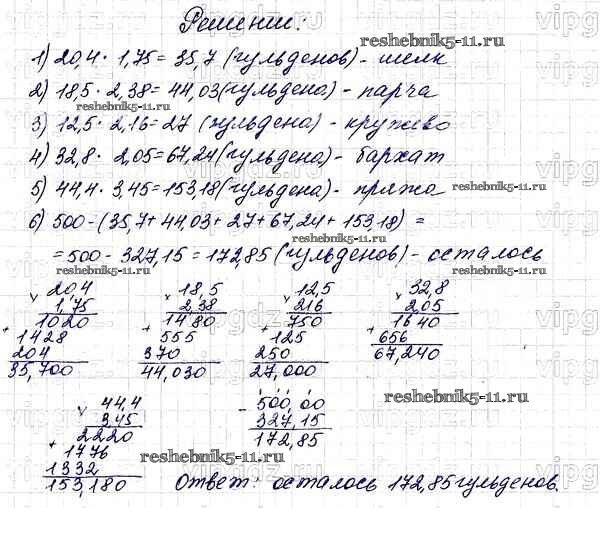 Решении:
1) 20,4 · 1,75 = 35,7 (гульденов) - шелк
2) 18,5 · 2,38 = 44,03 (гульдена) - парча
3) 12,5 · 2,16 = 27 (гульдена) - кружево
4) 32,8 · 2,05 = 67,24 (гульдена) - бархат
5) 44,4 · 3,45 = 153,18 (гульдена) - пряжа
6) 500 - (35,7 + 44,03 + 27 + 67,24 + 153,18) =
= 500 - 327,15 = 172,85 (гульденов) - осталось
× 20,4
1,75
1020
+ 1428
204
35,700
× 18,5
2,38
1480
+ 555
370
44,030
× 12,5
216
750
+ 125
250
27,000
× 32,8
2,05
1640
+ 656
67,240
× 44,4
345
2220
+ 1776
1332
153,180
- 500,00
327,15
172,85
Ответ: осталось 172,85 гульденов.
reshebnik5-11.ru
reshebnik5-11.ru
reshebnik5-11.ru
reshebnik5-11.ru
reshebnik5-11.ru
reshebnik5-11.ru
reshebnik5-11.ru
vipgdz.ru